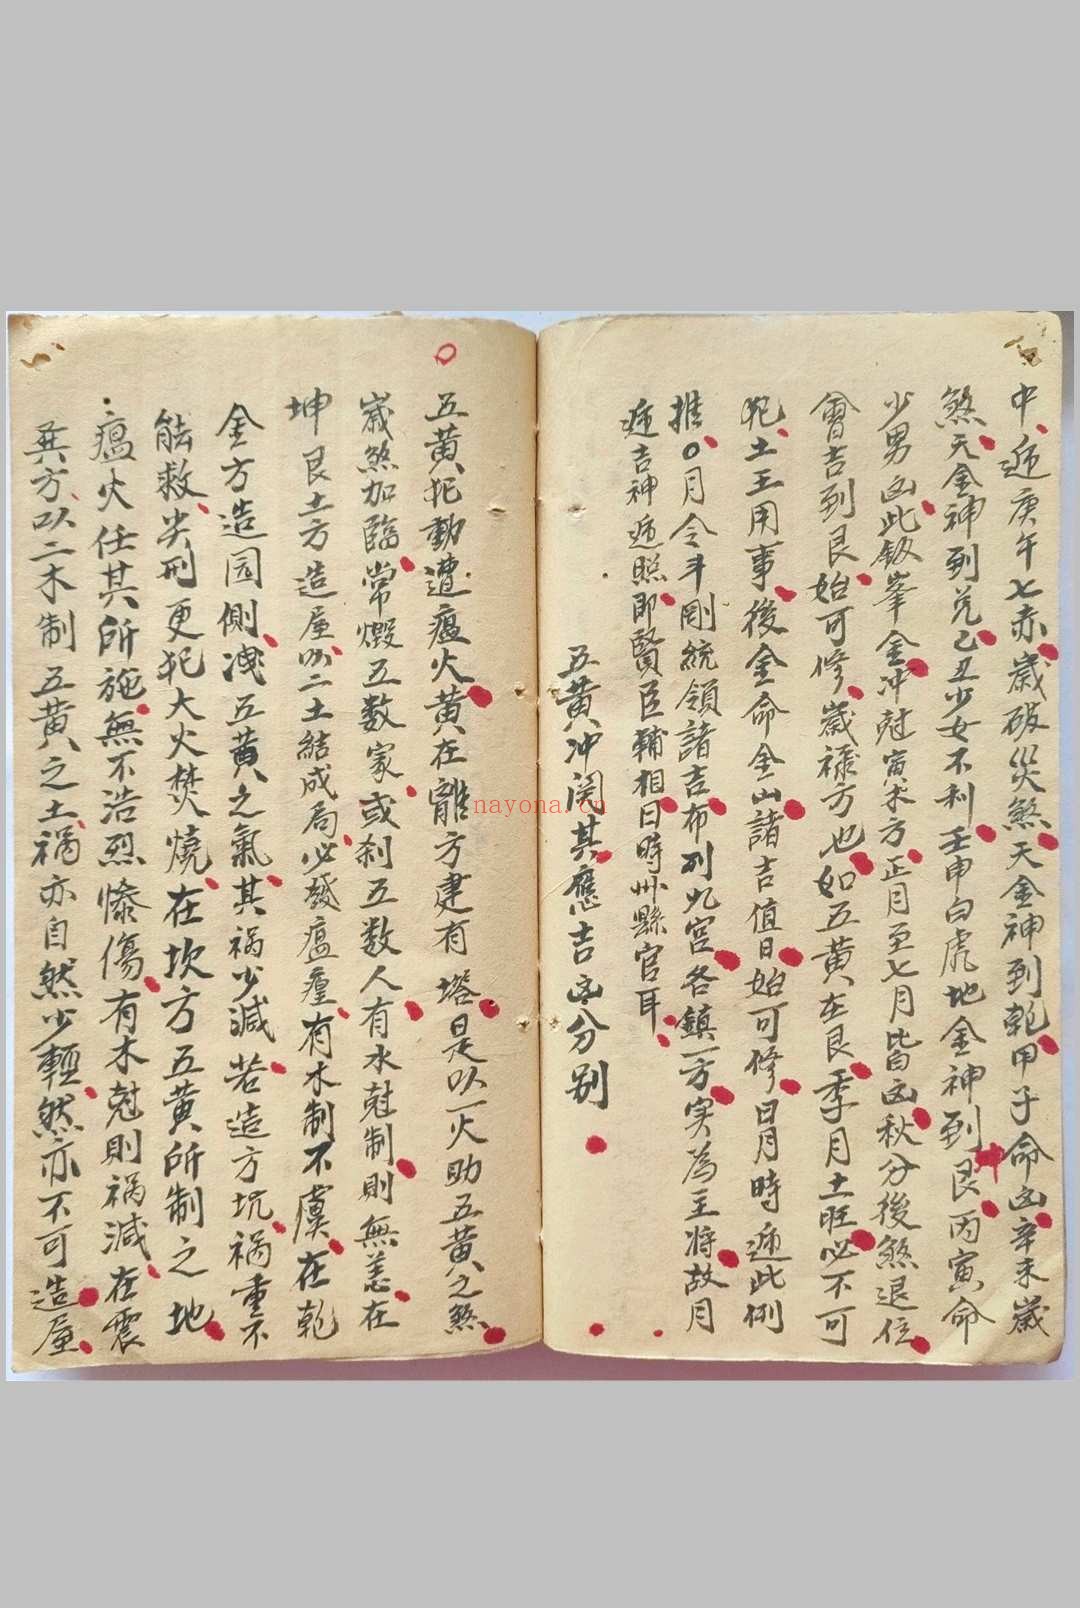 中遁庚午七赤歲破災煞天金神到乾甲子命凶辛未歲
煞天金神到兌乙丑少女不利壬申白虎地金神到艮丙寅命
坤
少男凶此級峯金冲尅寅未方正月至七月皆凶秋分後煞退位
會吉到艮始可修歲祿方也如五黄在艮季月土旺必不可
犯土王用事後金命金山諸吉值日始可修日月時遁此例
推〇月令斗剛統領諸吉布列九宮各鎮一方实為主將故月
遁吉神遁照即賢臣輔相日時州縣官耳
五黄冲関其應吉凶分别
五黄犯動遭瘟火黄在離方建有塔是以一火助五黄之煞
歲煞加臨常燬五数家或刹五数人有水尅制則無恙在
坤艮土方造屋以二土結成局必發瘟瘴有木制不虞在乾
金方造园側洩五黄之氣其禍少減若造方坑禍重不
能救尖刑更犯大火焚燒在坎方五黄所制之地
瘟火任其所施無不浩烈慘傷有木尅則禍減在震
巽方以二木制五黄之土禍亦自然少輕然亦不可造屋
nayona.cn